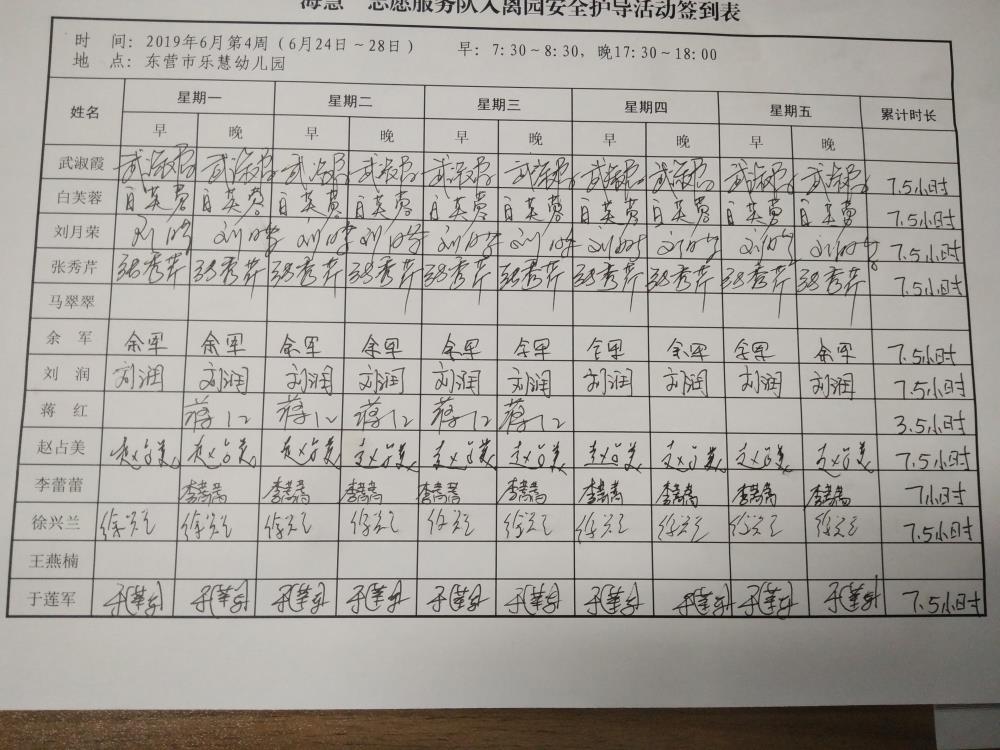 海慧 志愿服务队入离园安全护导活动签到表
时 间：2019年6月第4周（6月24日～28日） 早：7:30～8:30，晚17:30～18:00
地 点：东营市乐慧幼儿园
姓名 星期一 星期二 星期三 星期四 星期五 累计时长
早 晚 早 晚 早 晚 早 晚 早 晚
武淑霞 武淑霞 武淑霞 武淑霞 武淑霞 武淑霞 武淑霞 武淑霞 武淑霞 武淑霞 武淑霞 7.5小时
白芙蓉 白芙蓉 白芙蓉 白芙蓉 白芙蓉 白芙蓉 白芙蓉 白芙蓉 白芙蓉 白芙蓉 白芙蓉 7.5小时
刘月荣 刘月荣 刘月荣 刘月荣 刘月荣 刘月荣 刘月荣 刘月荣 刘月荣 刘月荣 刘月荣 7.5小时
张秀芹 张秀芹 张秀芹 张秀芹 张秀芹 张秀芹 张秀芹 张秀芹 张秀芹 张秀芹 张秀芹 7.5小时
马翠翠
余 军 余军 余军 余军 余军 余军 余军 余军 余军 余军 余军 7.5小时
刘 润 刘润 刘润 刘润 刘润 刘润 刘润 刘润 刘润 刘润 刘润 7.5小时
蒋 红 蒋红 蒋红 蒋红 蒋红 蒋红 3.5小时
赵占美 赵占美 赵占美 赵占美 赵占美 赵占美 赵占美 赵占美 赵占美 赵占美 赵占美 7.5小时
李蕾蕾 李蕾蕾 李蕾蕾 李蕾蕾 李蕾蕾 李蕾蕾 李蕾蕾 李蕾蕾 李蕾蕾 李蕾蕾 7小时
徐兴兰 徐兴兰 徐兴兰 徐兴兰 徐兴兰 徐兴兰 徐兴兰 徐兴兰 徐兴兰 徐兴兰 徐兴兰 7.5小时
王燕楠
于莲军 于莲军 于莲军 于莲军 于莲军 于莲军 于莲军 于莲军 于莲军 于莲军 于莲军 7.5小时